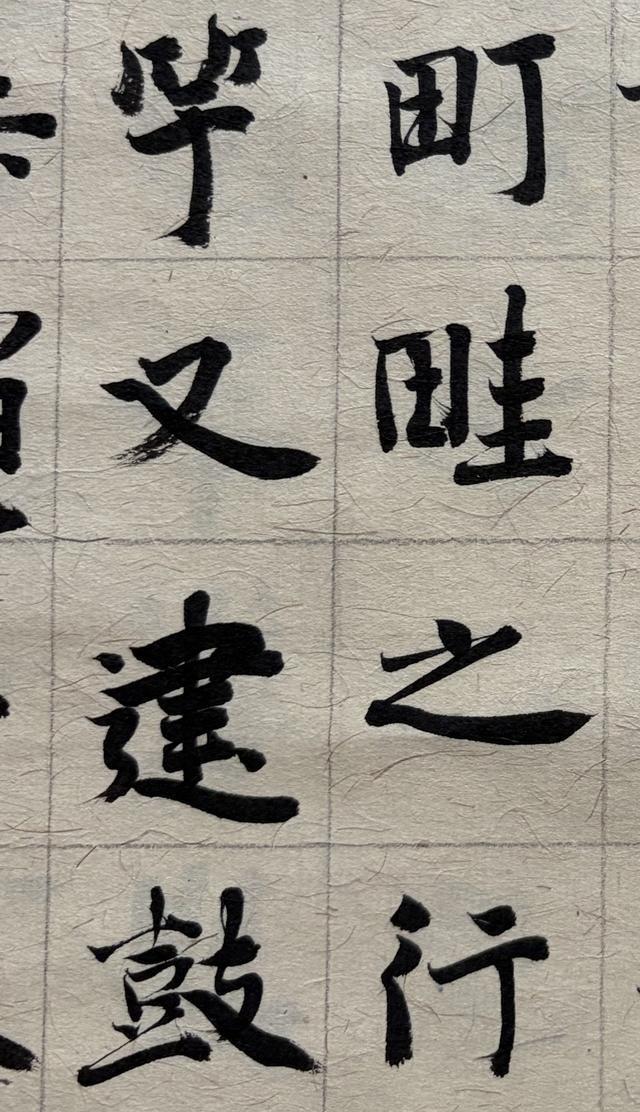 町畦之行
又建鼓